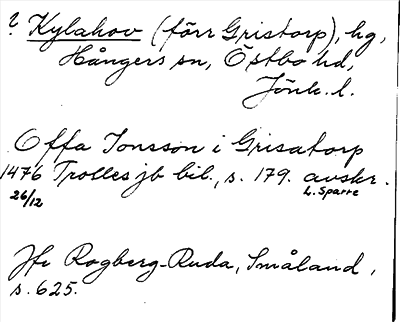 ? Kylahov (förr Gristorp), hg,
Hångers sn, Östbo hd,
Jönk. l.
Offa Jonsson i Grisatorp
1476 Trolles jb bil., s. 179. avskr.
26/12 L. Sparre
Jfr Rogberg-Ruda, Småland,
s. 625.